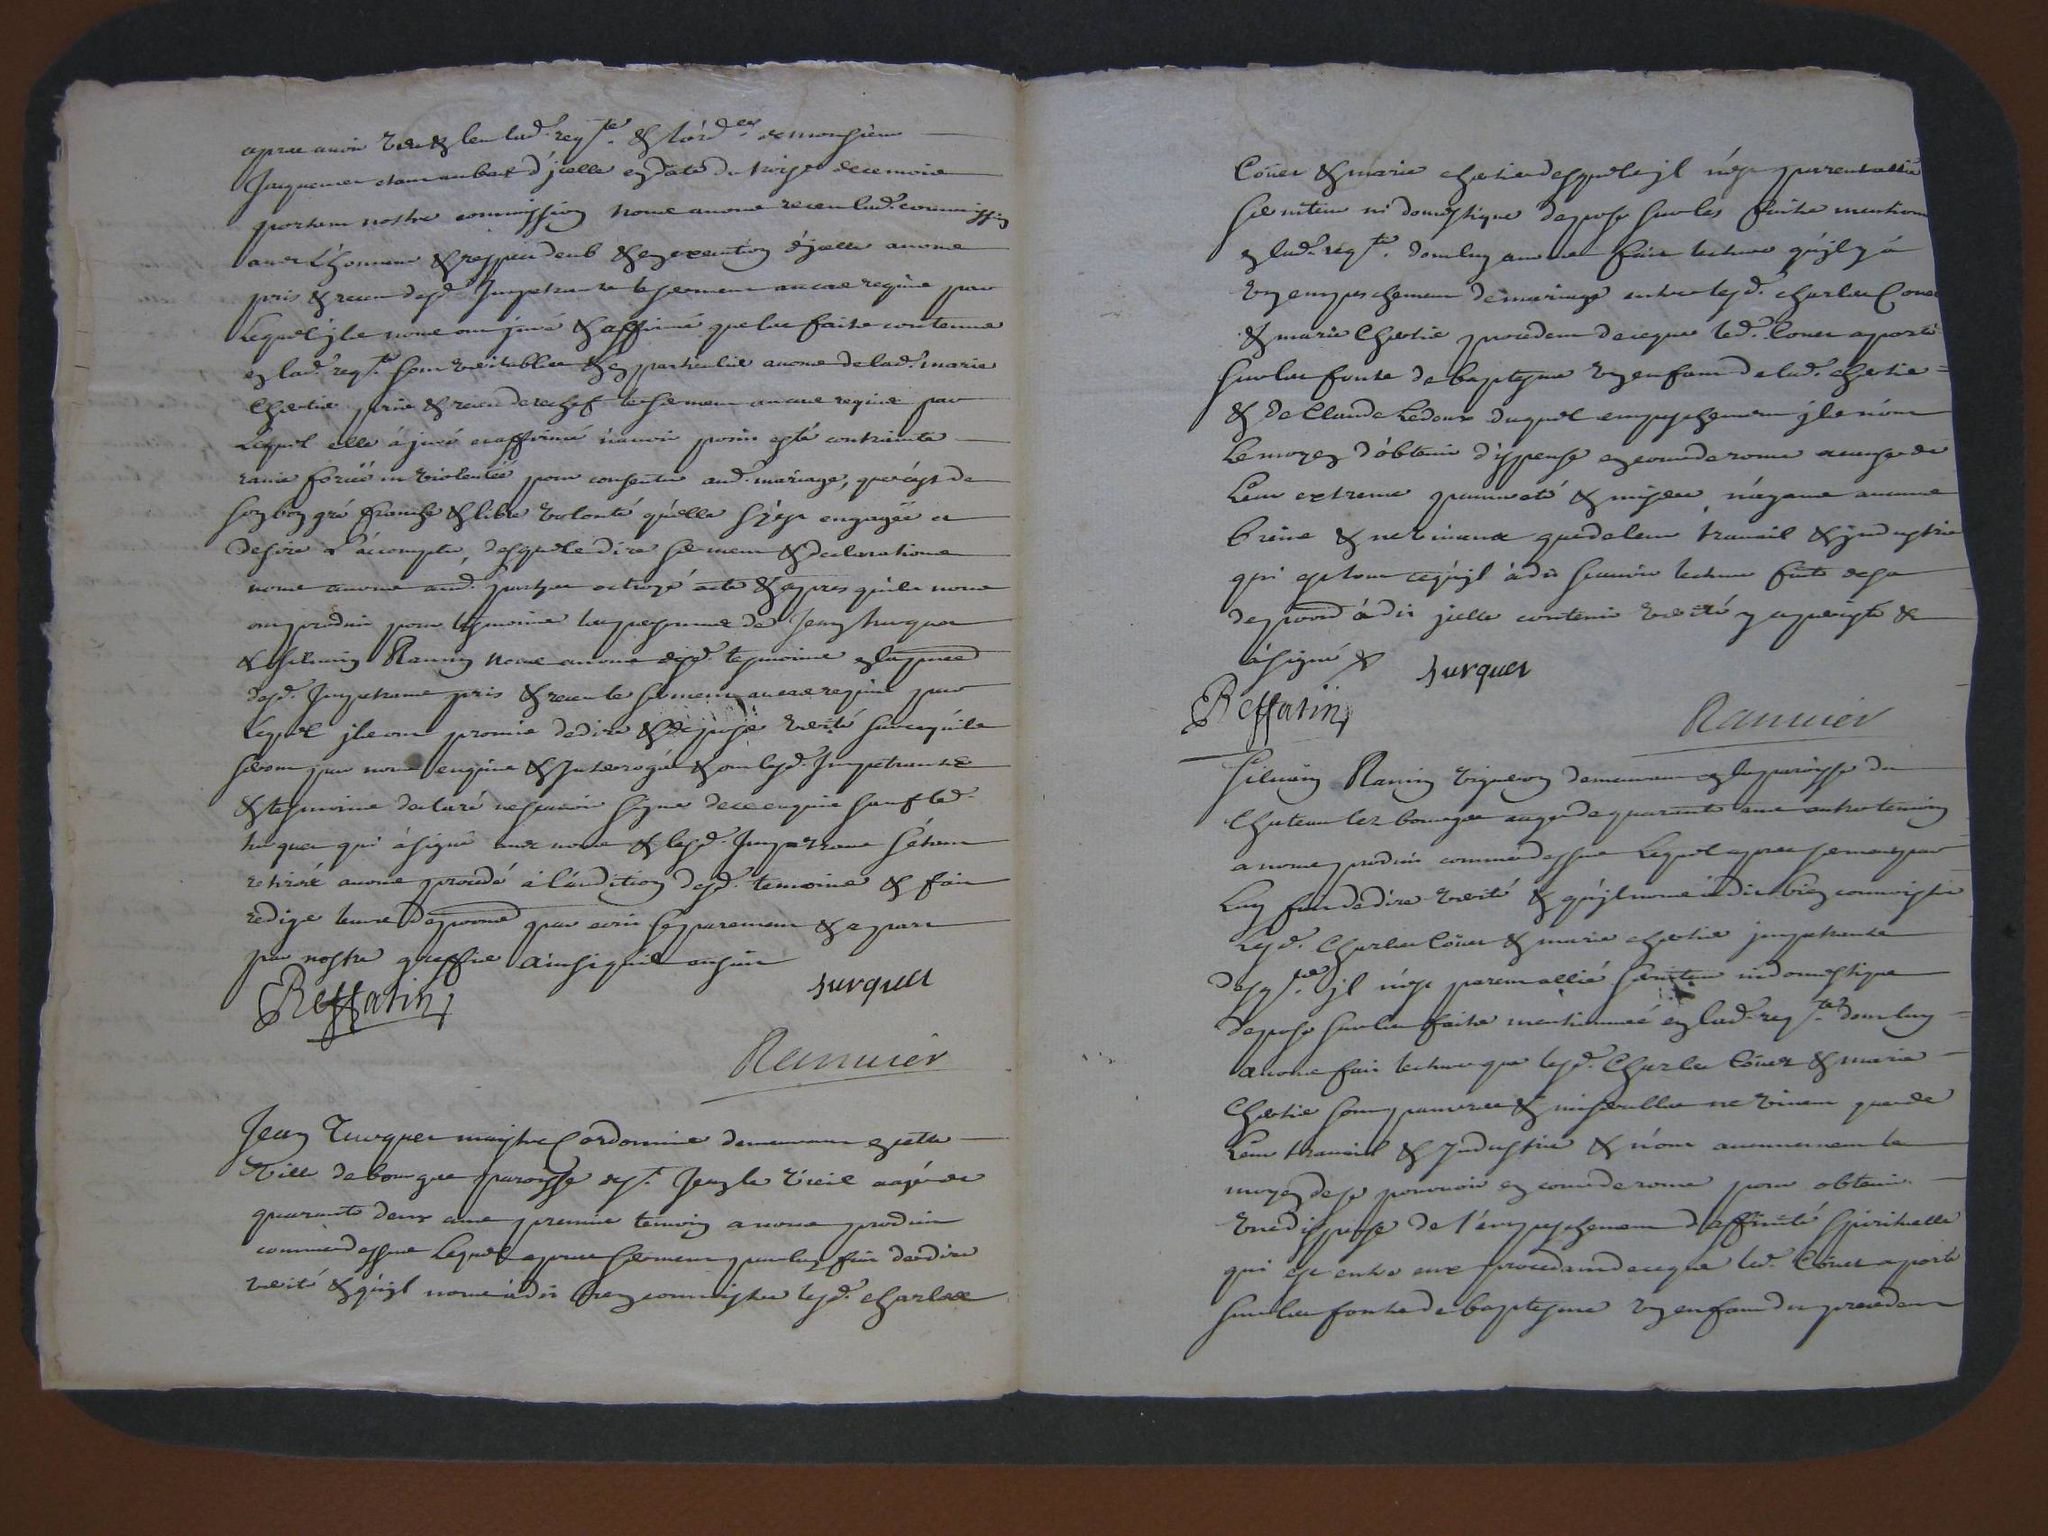 apres avoir veu & leu lad. reqte. & l'ord.ce de monsieur
Jacquemet estant au bas d'jcelle en date du troise decembre
portant nostre commission nous avons receu lad. commission
avec l'honneur & respect deub & en execution d'jcelle avons
pris & receu desd. Impetrants le serment au cas requis par
lequel jls nous ont juré & affirmé que les faits contenus
en lad. reqte. sont veritables & en particulier avons de lad. marie
Chertie pris & receu derechef le serment au cas requis par
lequel elle à juré et affirmé n'avoir point esté contrainte
ravie forcée ni violentée pour consentir aud. mariage, que c'est de
son bon gré franche & libre volonté qu'elle s'y est engagée et
desire l'acomplir, desquels dire serment & declarations
nous avons aud. partyes octroyé acte & apres qu'ils nous
ont produit pour tesmoins les personnes de Jean turquet
& silvain Ramin nous avons desd. tesmoins en la presence
desd. Impetrans pris & receu le serment au cas requis par
lequel jls ont promis de dire & deposer verité sur ce qu'ils
seront par nous enquis & Interrogés & ont lesd. Impetrants
& tesmoins declaré ne sçavoir signer de ce enquis sauf led.
turquet qui à signé avec nous & lesd. Impetrans s'étant
retirés avons procedé à l'audition desd. temoins & fait
rediger leurs deposions par écrit separement & a part
par nostre greffier ainsi qu'il ensuit
Beffatin turquet
Rannier
Jean Turquet maistre Cordonnier demeurant en cette
ville de bourges paroisse de st. Jean le vieil aagé de
quarante deux ans premier temoin a nous produit
comme dessus lequel apres serment par luy fait de dire
verité & qu'jl nous à dit bien connoistre lesd. charles
Coüet & marie chertie desquels jl n'est parent allié
serviteur ni domestique depose sur les faits mentionés
en lad. reqte. dont luy avons fait lecture qu'jl y à
un empeschement de mariage entre lesd. charles Couet
& marie Chertie procedant de ce que led. Couet a porté
sur les fonts de baptesme un enfant de lad. chertie
& de Claude Ledoux duquel empeschement jls n'ont
le moyen d'obtenir dispense en cour de rome a cause de
leur extreme pauvreté & misere n'ayans aucuns
biens & ne vivans que de leur travail & jndustrie
qui est tout ce qu'jl à dit sçavoir lecture faite de sa
deposion à dit jcelle contenir verité y a persisté &
à signé & turquet
Beffatin
Rannier
Silvain Ramin vigneron demeurant en la paroisse du
Chateau lez bourges aagé de quarante ans autre temoin
a nous produit comme dessus lequel apres serment par
luy fait de dire verité & qu'jl nous à dit bien connoistre
lesd. Charles Coüet & marie chertie jmpetrants
desqls. jl n'est parent allié serviteur ni domestique
depose sur les faits mentionnés en lad. reqte. dont luy
avons fait lecture que lesd. Charles Coüet & marie
Chertie sont pauvres & miserables ne vivent que de
leur travail & Jndustrie & n'ont aucunement le
moyen de se pourvoir en cour de rome pour obtenir
une dispense de l'empeschement d'affinité spirituelle
qui est entre eux procedant de ce que led. Coüet a porté
sur les fonts de baptesme un enfant du precedent